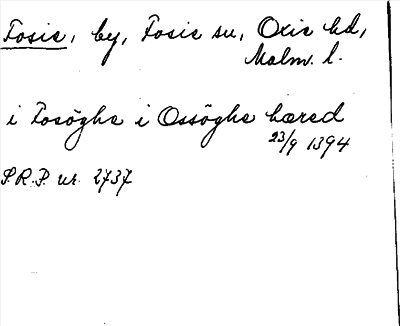 Fosie, by, Fosie sn, Oxie hd,
Malm. l.
i Fosöghe i Ossöghe hæred
23/9 1394
S.R.P. nr. 2737